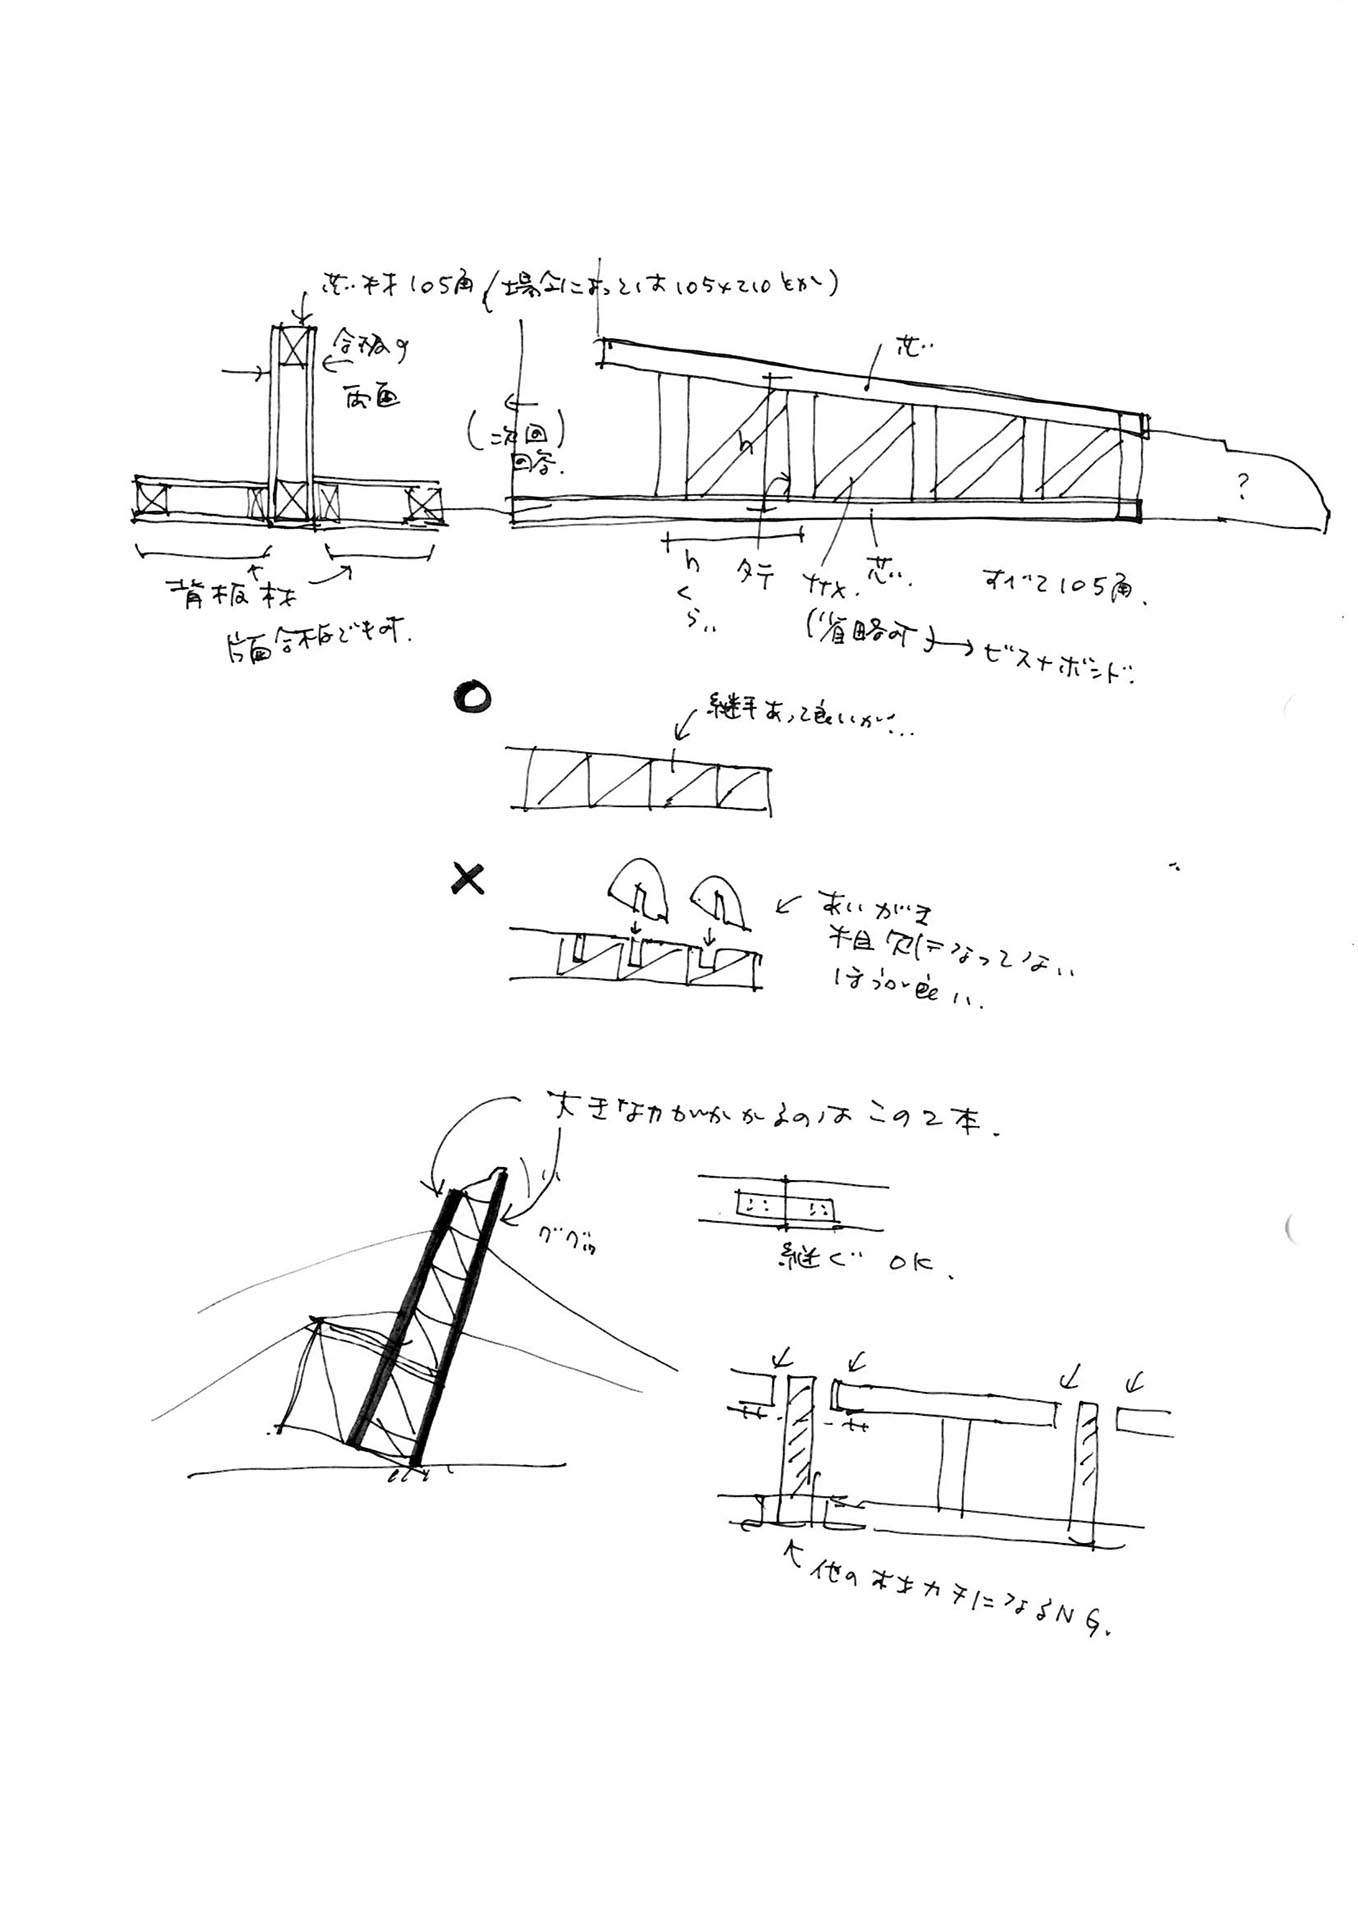 芯材105角(場合によっては105×210とか)
合板の
両面
芯
(次回)
回答.
h
?
背板材
片面合板でも可.
h
く
ら
い
タテ
ナナメ.
(省略可)→ビス+ボンド.
芯.
すべて105角.
○
継手あって良いが...
×
あいがき
相欠になってない
ほうが良い.
大きな力がかかるのはこの2本.
ググッ
継ぐ OK.
他の材カチになるNG.